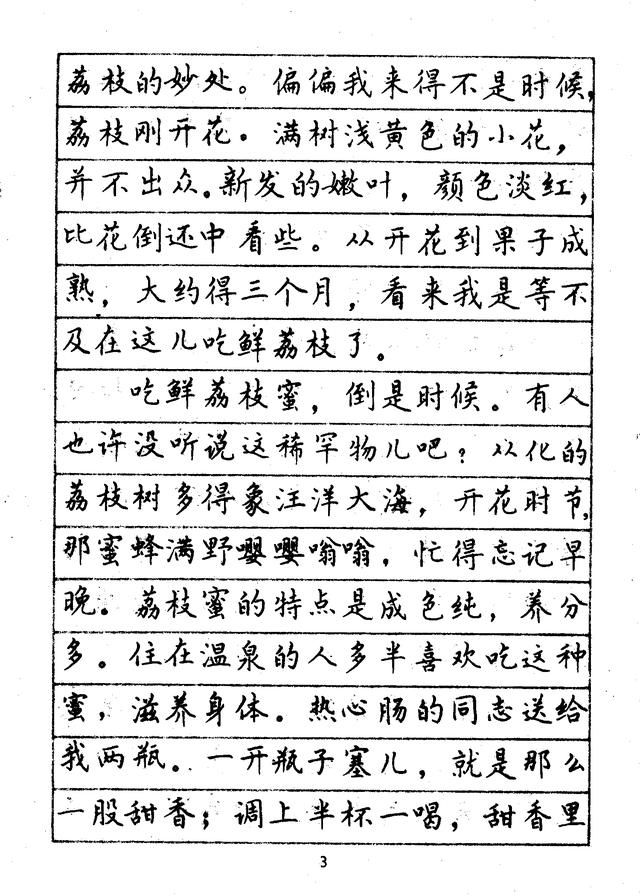 荔枝的妙处。偏偏我来得不是时候，
荔枝刚开花。满树浅黄色的小花，
并不出众。新发的嫩叶，颜色淡红，
比花倒还中看些。从开花到果子成
熟，大约得三个月，看来我是等不
及在这儿吃鲜荔枝了。
吃鲜荔枝蜜，倒是时候。有人
也许没听说这稀罕物儿吧？从化的
荔枝树多得象汪洋大海，开花时节，
那蜜蜂满野嘤嘤嗡嗡，忙得忘记早
晚。荔枝蜜的特点是成色纯，养分
多。住在温泉的人多半喜欢吃这种
蜜，滋养身体。热心肠的同志送给
我两瓶。一开瓶子塞儿，就是那么
一股甜香；调上半杯一喝，甜香里
3